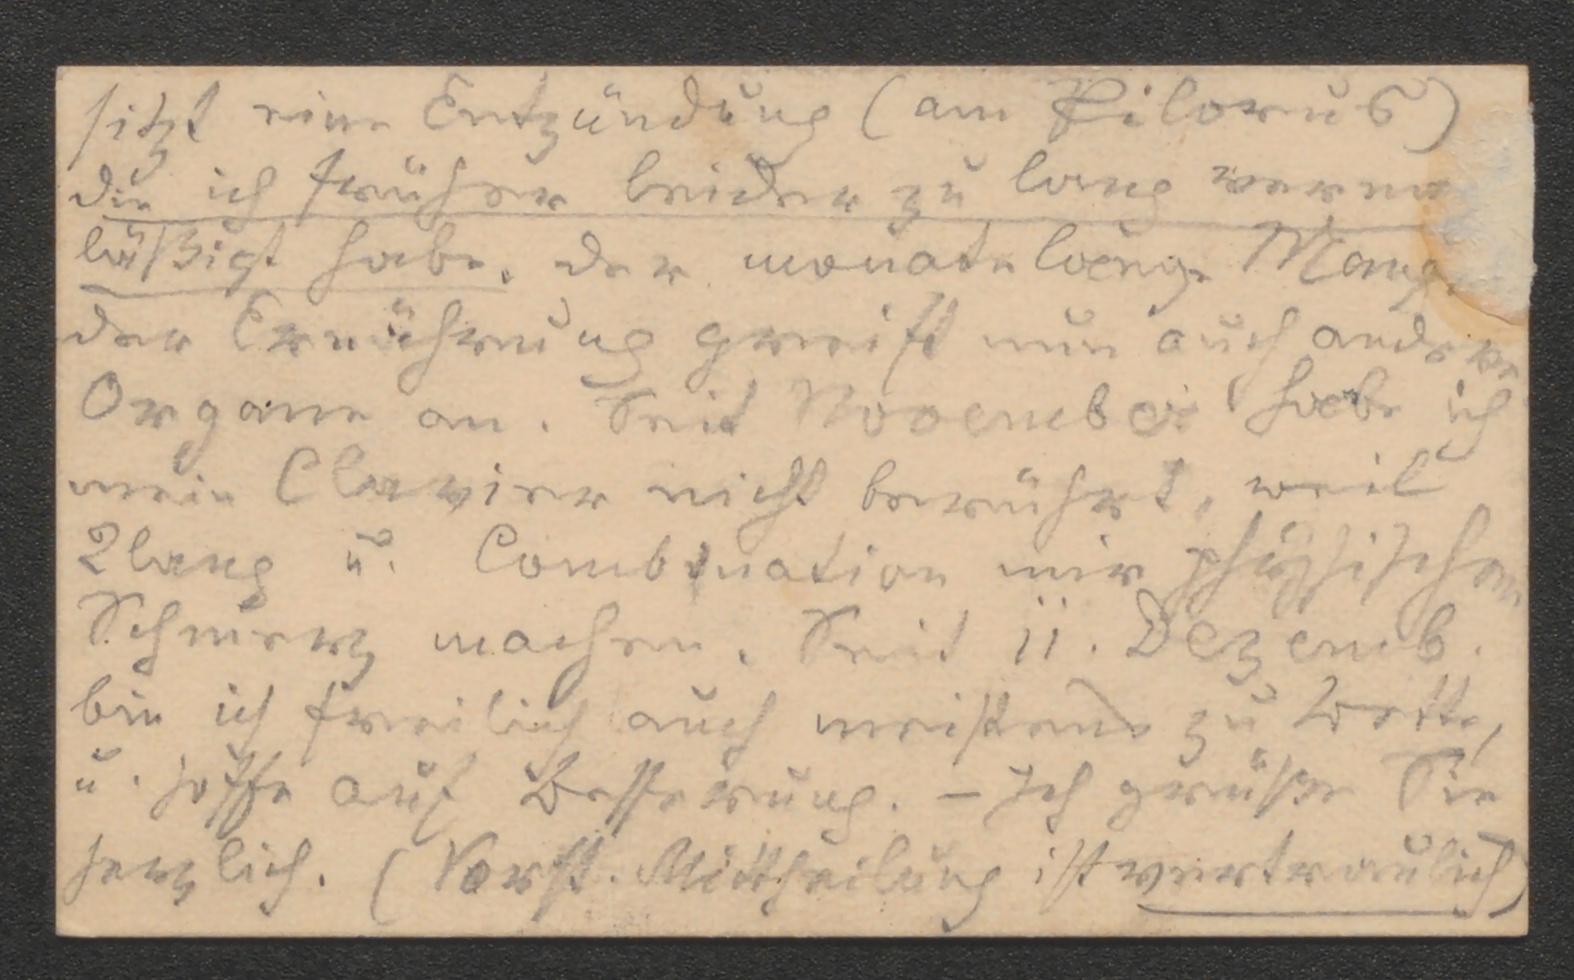 sitzt eine Entzündung (am Pilorus)
die ich früher leider zu lang verna
läßigt habe. Der monatelange Mang
der Ernährung greift nun auch andere
Organe an. Seit November habe ich
mein Clavier nicht berührt, weil
Klang u. Combination mir physischen
Schmerz machen. Seit 11. Dezemb.
bin ich freilich auch meistens zu Bette,
u. hoffe auf Besserung. – Ich grüße Sie
herzlich. (Vorst. Mittheilung ist vertraulich)